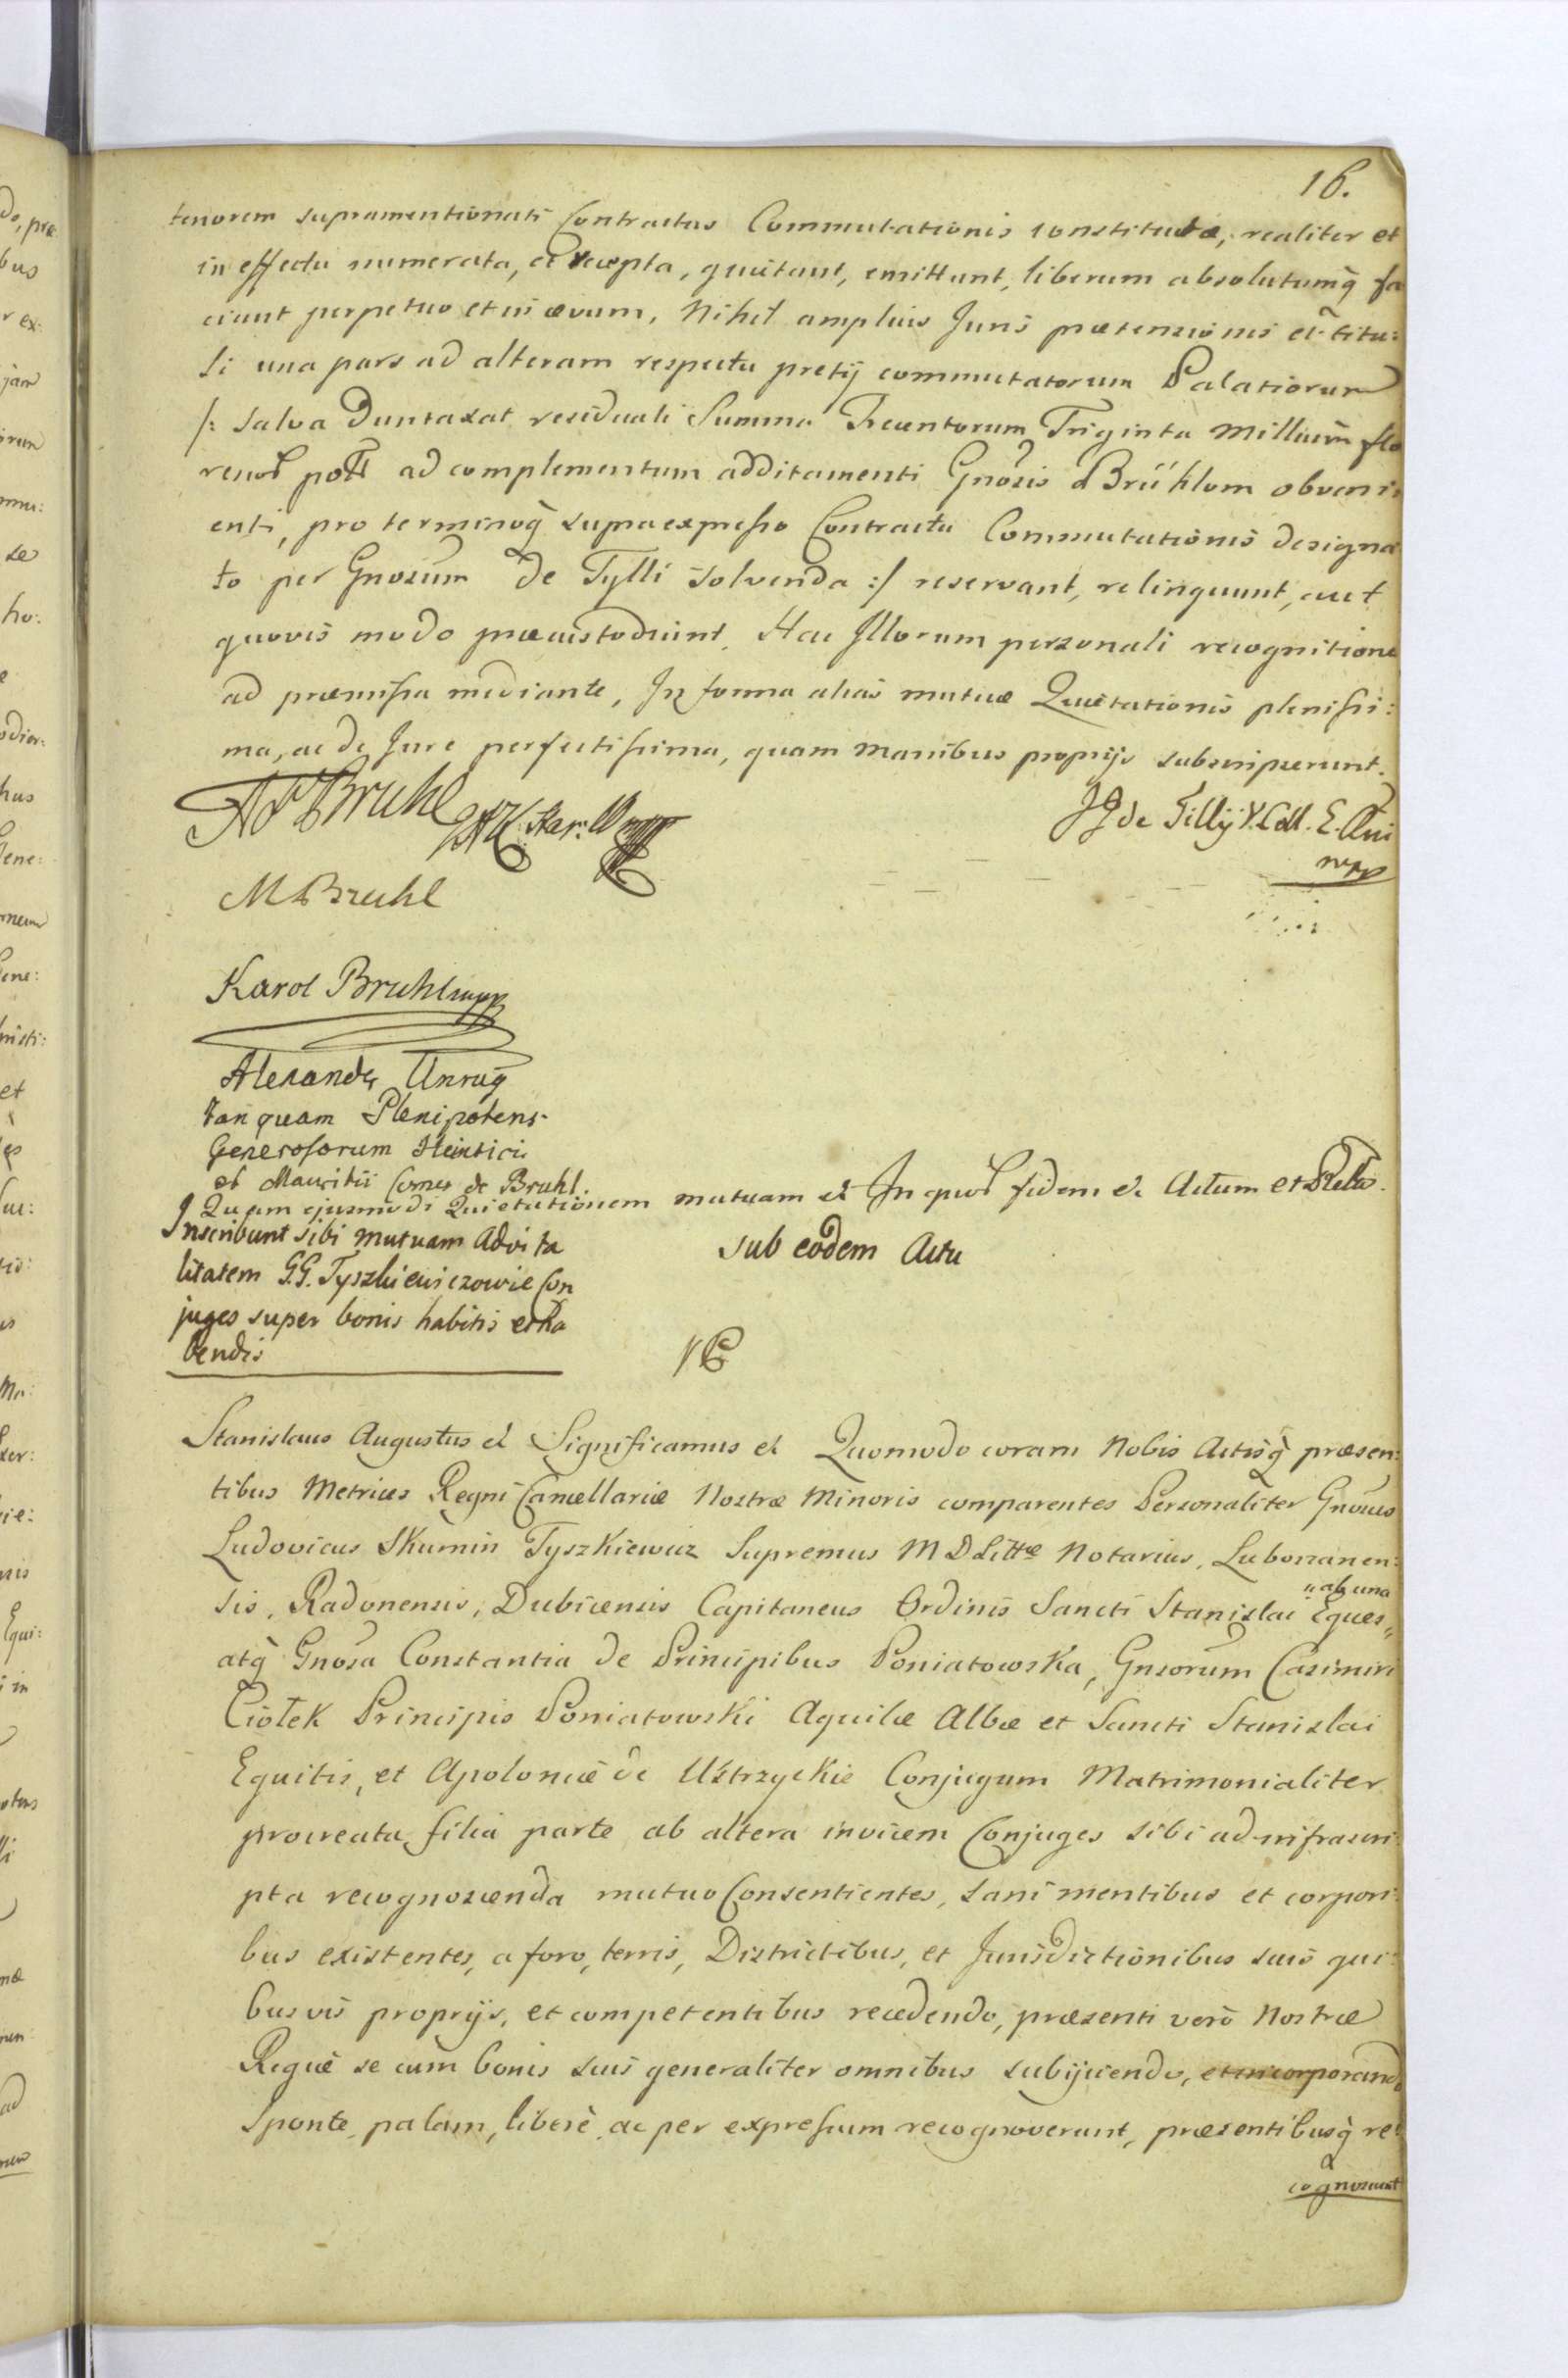 16.
tenorem supramentionati Contractus Commutationis constituta, realiter et
in effectu numerata, et recepta, quietant, emittunt, liberum absolutumq̀ fa
ciunt perpetuo et in ævum, Nihil amplius Juris prætensionis et titu:
li una pars ad alteram respectu pretij commutatorum Palatiorum
/: salva Duntaxat residuali Summa Trecentorum Triginta Millium flo
renoꝝ poll ad complementum additamenti Gnosis a Brühlom obveni
enti, pro terminoq̀ supraexpresso Contractu Commutationis designa
to per Gnosum de Tylli solvenda :/ reservant, relinquunt, aut
quovis modo præcustodiunt. Hac Jllorum personali recognitione
ad præmissa mediante, In forma alias mutuæ Quietationis plenissi:
ma, ac de Jure perfectissima, quam Manibus proprijs subscripserunt.
AF Bruhl
JG de Tillij
M Bruhl
Karol Bruhl mpp
Alexander Unrug
tanquam Plenipotens
Generosorum Heinrici
et Mauritii Comes de Bruhl.
Quam ejusmodi Quietationem mutuam et In quoꝝ fidem et Actum et
Inscribunt sibi mutuam Advita
litatem G.G. Tyszkiewiczowie Con
juges super bonis habitis et ha
bendis
sub eodem Actu
Stanislaus Augustus et Significamus et Quomodo coram Nobis Actisq̀ præsen:
tibus Metrices Regni Cancellariæ Nostræ Minoris comparentes Personaliter Gnosus
Ludovicus Skumin Tyszkiewicz Supremus M D Littæ Notarius, Luboszanen:
sis, Radonensis, Dubicensis Capitaneus Ordinis Sancti Stanislai Eques,,
"ab una
atq̀ Gnosa Constantia de Principibus Poniatowska, Gnsorum Casimiri
Ciołek Principis Poniatowski Aquilæ Albæ et Sancti Stanislai
Equitis, et Apoloniæ de Ustrzyckie Conjugum Matrimonialiter
procreata filia parte ab altera invicem Conjuges sibi ad infrascri
pta recognoscenda mutuo Consentientes, sani mentibus et corpori:
bus existentes, a foro, terris, Districtibus, et Jurisdictionibus suis qui:
busvis proprijs, et competentibus recedendo, præsenti verò Nostræ
Regiæ se cum bonis suis generaliter omnibus subijciendo, et incorporando
Sponte, palam, liberè, ac per expressum recognoverunt, præsentibusq̀ re:
cognoscunt